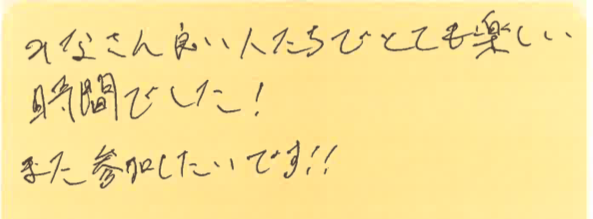 みなさん良い人たちでとても楽しい
時間でした!
また参加したいです!!